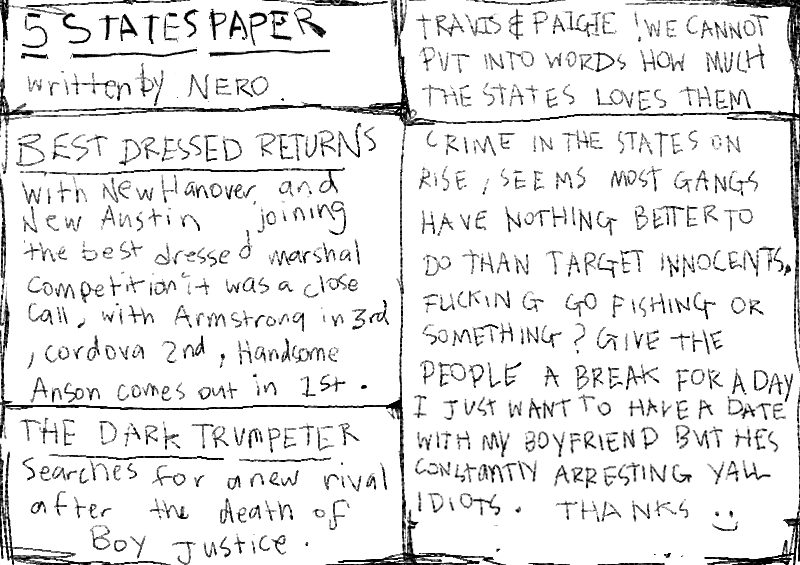 5 STATES PAPER
written by NERO.
BEST DRESSED RETURNS
with New Hanover and
New Austin , joining
the best dressed marshal
competition it was a close
call, with Armstrong in 3rd
, cordova 2nd, Handsome
Anson comes out in 1st.
THE DARK TRUMPETER
Searches for a new rival
after the death of
Boy Justice.
TRAVIS & PAIGIE ! WE CANNOT
PUT INTO WORDS HOW MUCH
THE STATES LOVES THEM
CRIME IN THE STATES ON
RISE, SEEMS MOST GANGS
HAVE NOTHING BETTER TO
DO THAN TARGET INNOCENTS,
FUCKING GO FISHING OR
SOMETHING? GIVE THE
PEOPLE A BREAK FOR A DAY
I JUST WANT TO HAVE A DATE
WITH MY BOYFRIEND BUT HES
CONSTANTLY ARRESTING YALL
IDIOTS. THANKS :)